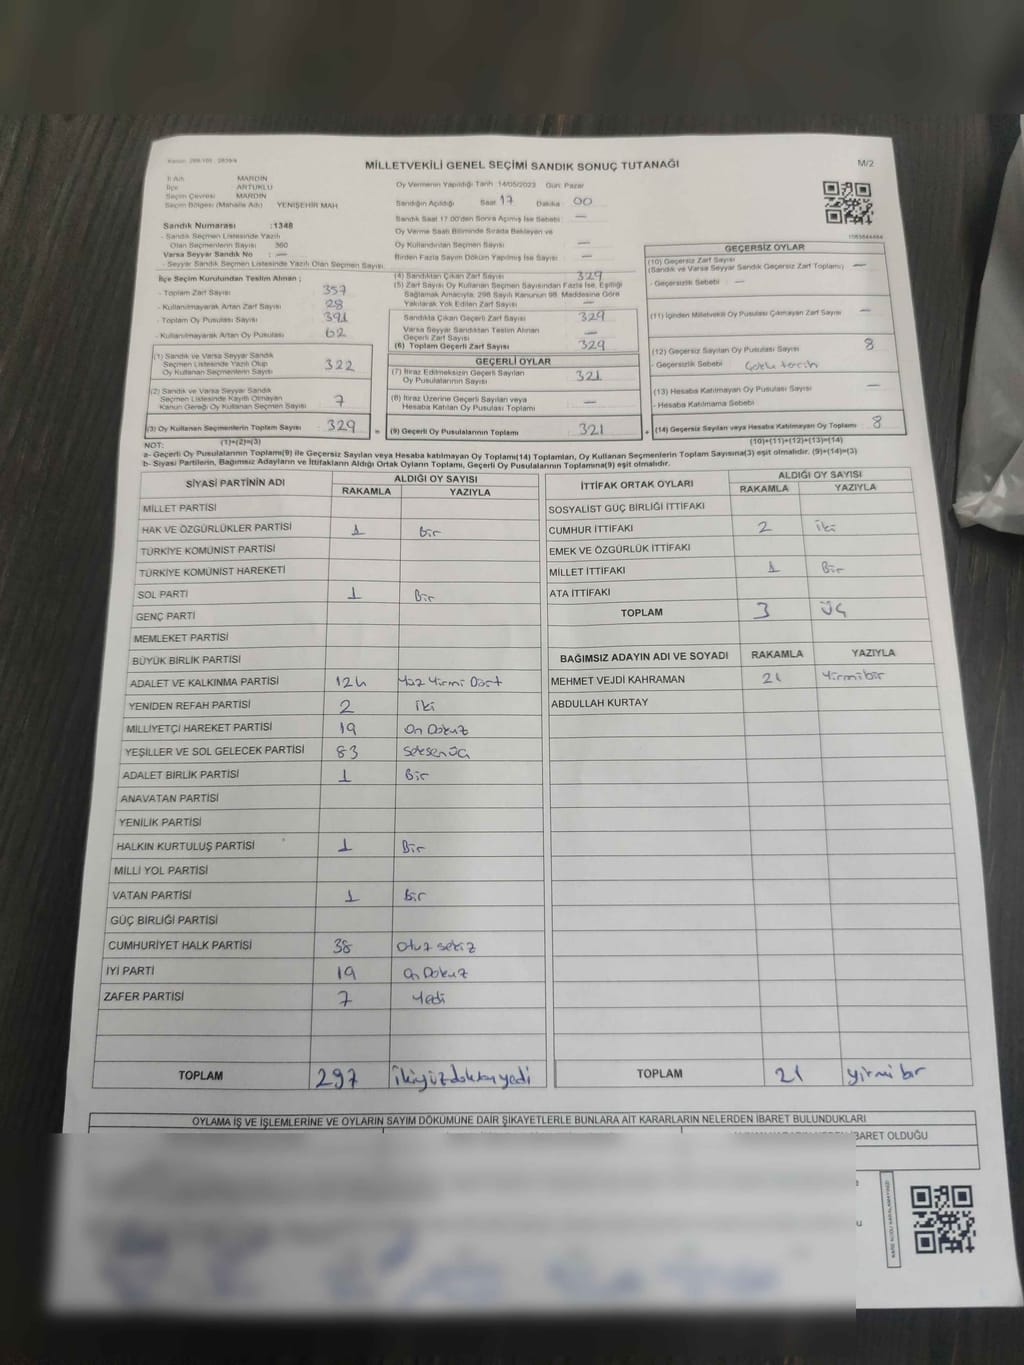 MİLLETVEKİLİ GENEL SEÇİMİ SANDIK SONUÇ TUTANAĞI
M/2
İl Adı MARDİN
İlçe ARTUKLU
Seçim Çevresi MARDİN
Seçim Bölgesi (Mahalle Adı) YENİŞEHİR MAH
Oy Vermenin Yapıldığı Tarih :14/05/2023 Gün: Pazar
Sandığın Açıldığı Saat 17 Dakika 00
Sandık Saat 17.00'den Sonra Açılmış İse Sebebi : —
Oy Verme Saati Bitiminde Sırada Bekleyen ve
Oy Kullandırılan Seçmen Sayısı —
Birden Fazla Sayım Döküm Yapılmış İse Sayısı : —
Sandık Numarası :1348
- Sandık Seçmen Listesinde Yazılı
Olan Seçmenlerin Sayısı 360
Varsa Seyyar Sandık No : —
- Seyyar Sandık Seçmen Listesinde Yazılı Olan Seçmen Sayısı
İlçe Seçim Kurulundan Teslim Alınan ;
- Toplam Zarf Sayısı 357
- Kullanılmayarak Artan Zarf Sayısı 28
- Toplam Oy Pusulası Sayısı 391
- Kullanılmayarak Artan Oy Pusulası 62
(1) Sandık ve Varsa Seyyar Sandık
Seçmen Listesinde Yazılı Olup
Oy Kullanan Seçmenlerin Sayısı 322
(2) Sandık ve Varsa Seyyar Sandık
Seçmen Listesinde Kayıtlı Olmayan
Kanun Gereği Oy Kullanan Seçmen Sayısı 7
(3) Oy Kullanan Seçmenlerin Toplam Sayısı 329
(1)+(2)=(3)
(4) Sandıktan Çıkan Zarf Sayısı 329
(5) Zarf Sayısı Oy Kullanan Seçmen Sayısından Fazla İse, Eşitliği
Sağlamak Amacıyla, 298 Sayılı Kanunun 98. Maddesine Göre
Yakılarak Yok Edilen Zarf Sayısı —
Sandıkta Çıkan Geçerli Zarf Sayısı 329
Varsa Seyyar Sandıktan Teslim Alınan
Geçerli Zarf Sayısı —
(6) Toplam Geçerli Zarf Sayısı 329
GEÇERLİ OYLAR
(7) İtiraz Edilmeksizin Geçerli Sayılan
Oy Pusulalarının Sayısı 321
(8) İtiraz Üzerine Geçerli Sayılan veya
Hesaba Katılan Oy Pusulası Toplamı —
= (9) Geçerli Oy Pusulalarının Toplamı 321
GEÇERSİZ OYLAR
(10) Geçersiz Zarf Sayısı
(Sandık ve Varsa Seyyar Sandık Geçersiz Zarf Toplamı) —
- Geçersizlik Sebebi : —
(11) İçinden Milletvekili Oy Pusulası Çıkmayan Zarf Sayısı —
(12) Geçersiz Sayılan Oy Pusulası Sayısı 8
- Geçersizlik Sebebi
(13) Hesaba Katılmayan Oy Pusulası Sayısı —
- Hesaba Katılmama Sebebi
+ (14) Geçersiz Sayılan veya Hesaba Katılmayan Oy Toplamı 8
(10)+(11)+(12)+(13)=(14)
NOT:
a- Geçerli Oy Pusulalarının Toplamı(9) ile Geçersiz Sayılan veya Hesaba katılmayan Oy Toplamı(14) Toplamları, Oy Kullanan Seçmenlerin Toplam Sayısına(3) eşit olmalıdır. (9)+(14)=(3)
b- Siyasi Partilerin, Bağımsız Adayların ve İttifakların Aldığı Ortak Oyların Toplamı, Geçerli Oy Pusulalarının Toplamına(9) eşit olmalıdır.
SİYASİ PARTİNİN ADI ALDIĞI OY SAYISI
RAKAMLA YAZIYLA
MİLLET PARTİSİ
HAK VE ÖZGÜRLÜKLER PARTİSİ 1 Bir
TÜRKİYE KOMÜNİST PARTİSİ
TÜRKİYE KOMÜNİST HAREKETİ
SOL PARTİ 1 Bir
GENÇ PARTİ
MEMLEKET PARTİSİ
BÜYÜK BİRLİK PARTİSİ
ADALET VE KALKINMA PARTİSİ 124 Yüz Yirmi Dört
YENİDEN REFAH PARTİSİ 2 iki
MİLLİYETÇİ HAREKET PARTİSİ 19 On Dokuz
YEŞİLLER VE SOL GELECEK PARTİSİ 83 Seksen üç
ADALET BİRLİK PARTİSİ 1 Bir
ANAVATAN PARTİSİ
YENİLİK PARTİSİ
HALKIN KURTULUŞ PARTİSİ 1 Bir
MİLLİ YOL PARTİSİ
VATAN PARTİSİ 1 Bir
GÜÇ BİRLİĞİ PARTİSİ
CUMHURİYET HALK PARTİSİ 38 Otuz sekiz
İYİ PARTİ 19 On Dokuz
ZAFER PARTİSİ 7 Yedi
TOPLAM 297 ikiyüzdoksanyedi
İTTİFAK ORTAK OYLARI ALDIĞI OY SAYISI
RAKAMLA YAZIYLA
SOSYALİST GÜÇ BİRLİĞİ İTTİFAKI
CUMHUR İTTİFAKI 2 iki
EMEK VE ÖZGÜRLÜK İTTİFAKI
MİLLET İTTİFAKI 1 Bir
ATA İTTİFAKI
TOPLAM 3 üç
BAĞIMSIZ ADAYIN ADI VE SOYADI RAKAMLA YAZIYLA
MEHMET VEJDİ KAHRAMAN 21 Yirmibir
ABDULLAH KURTAY
TOPLAM 21 yirmi bir
OYLAMA İŞ VE İŞLEMLERİNE VE OYLARIN SAYIM DÖKÜMÜNE DAİR ŞİKAYETLERLE BUNLARA AİT KARARLARIN NELERDEN İBARET BULUNDUKLARI
İBARET OLDUĞU